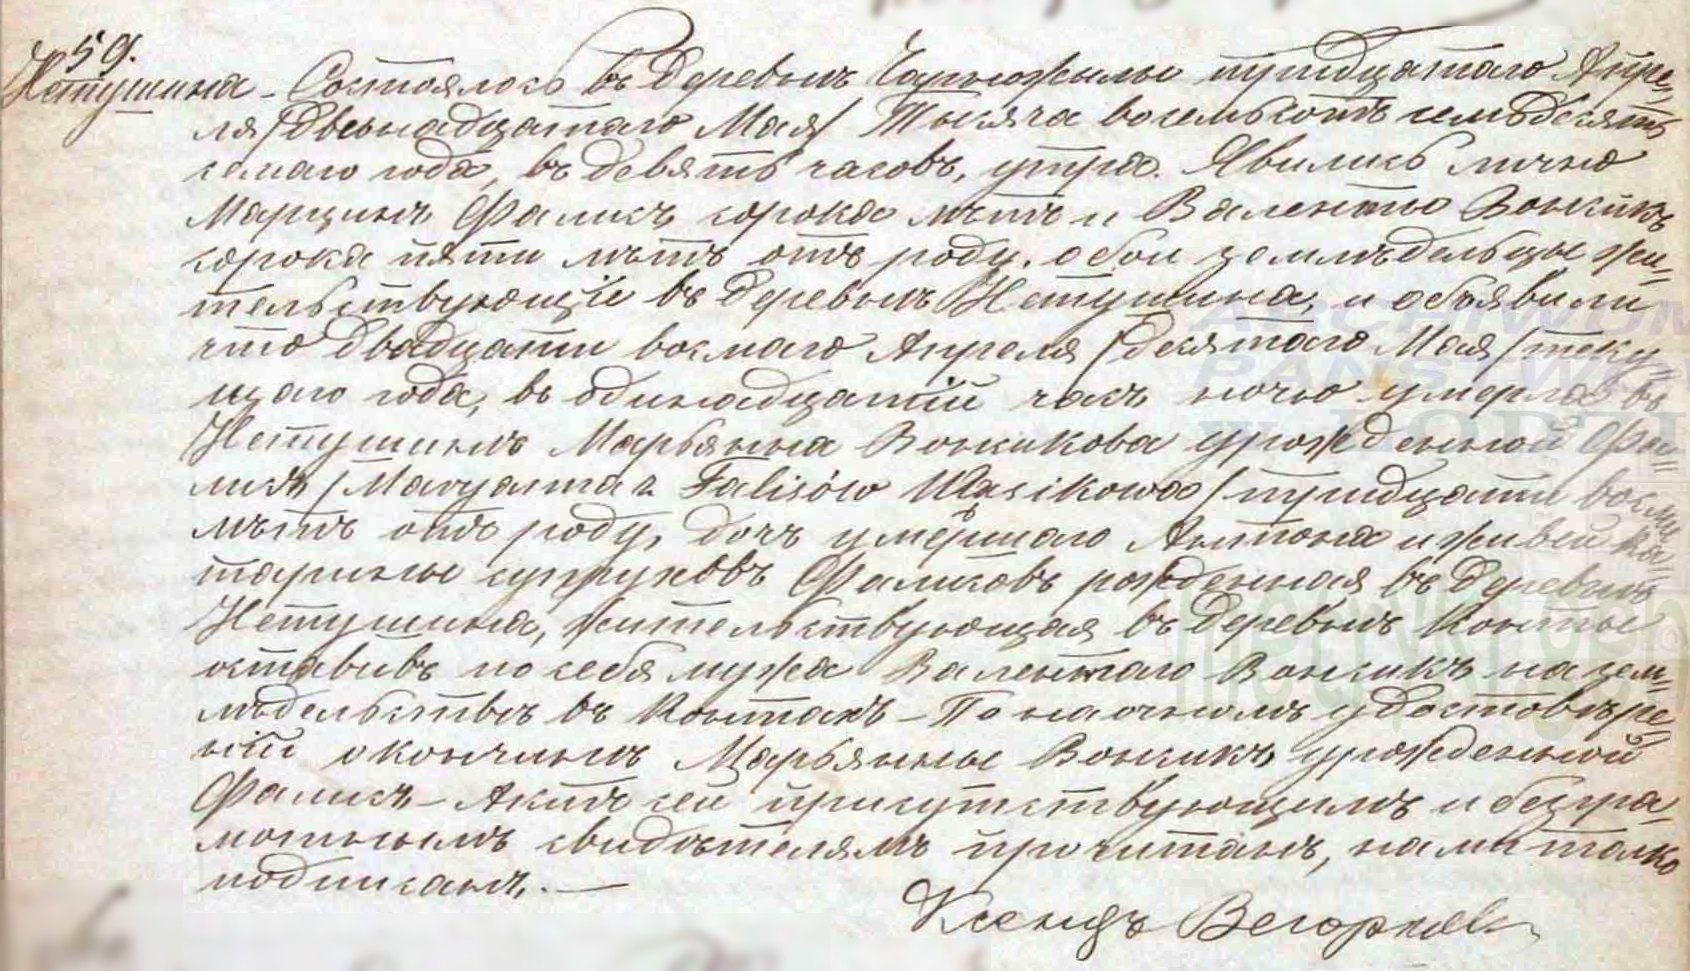 59.
Нетушина – Состоялось въ деревнѣ Чарножылы тридцатаго Апре-
ля /двѣнадцатаго Мая/ Тысяча восемьсотъ семьдесятъ
семаго года, въ девять часовъ, утра. Явились лично
Марцинъ Фалисъ сорока лѣтъ и Валентый Вонсикъ
сорока пяти лѣтъ отъ роду, обои земледѣльцы жи-
тельствующіе въ деревнѣ Нетушина, и объявили
что двадцати восмаго Апреля /десятаго Мая/ теку-
щаго года, въ одинадцатый часъ ночью умерла въ
Нетушинѣ Марьянна Вонсикова урожденной Фа-
лисъ /Maryanna z Falisów Wąsikowa/ тридцати восми
лѣтъ отъ роду, дочъ умершаго Антона и живей Ка-
тарины супруховъ Фалисовъ рожденная въ деревнѣ
Нетушина, жительствующая въ деревнѣ Конты
оставивъ по себя мужа Валентаго Вонсикъ на зем-
лѣдельствѣ въ Контахъ – По наочномъ удостовѣре-
ніи о кончинѣ Марьянны Вонсикъ урожденной
Фалисъ – Актъ сей присутствующимъ и безгра-
мотнымъ свидѣтелямъ прочитанъ, нами только
подписанъ. —
Ксендзъ
ARCHIWUM
PAŃSTW
W ŁODZI